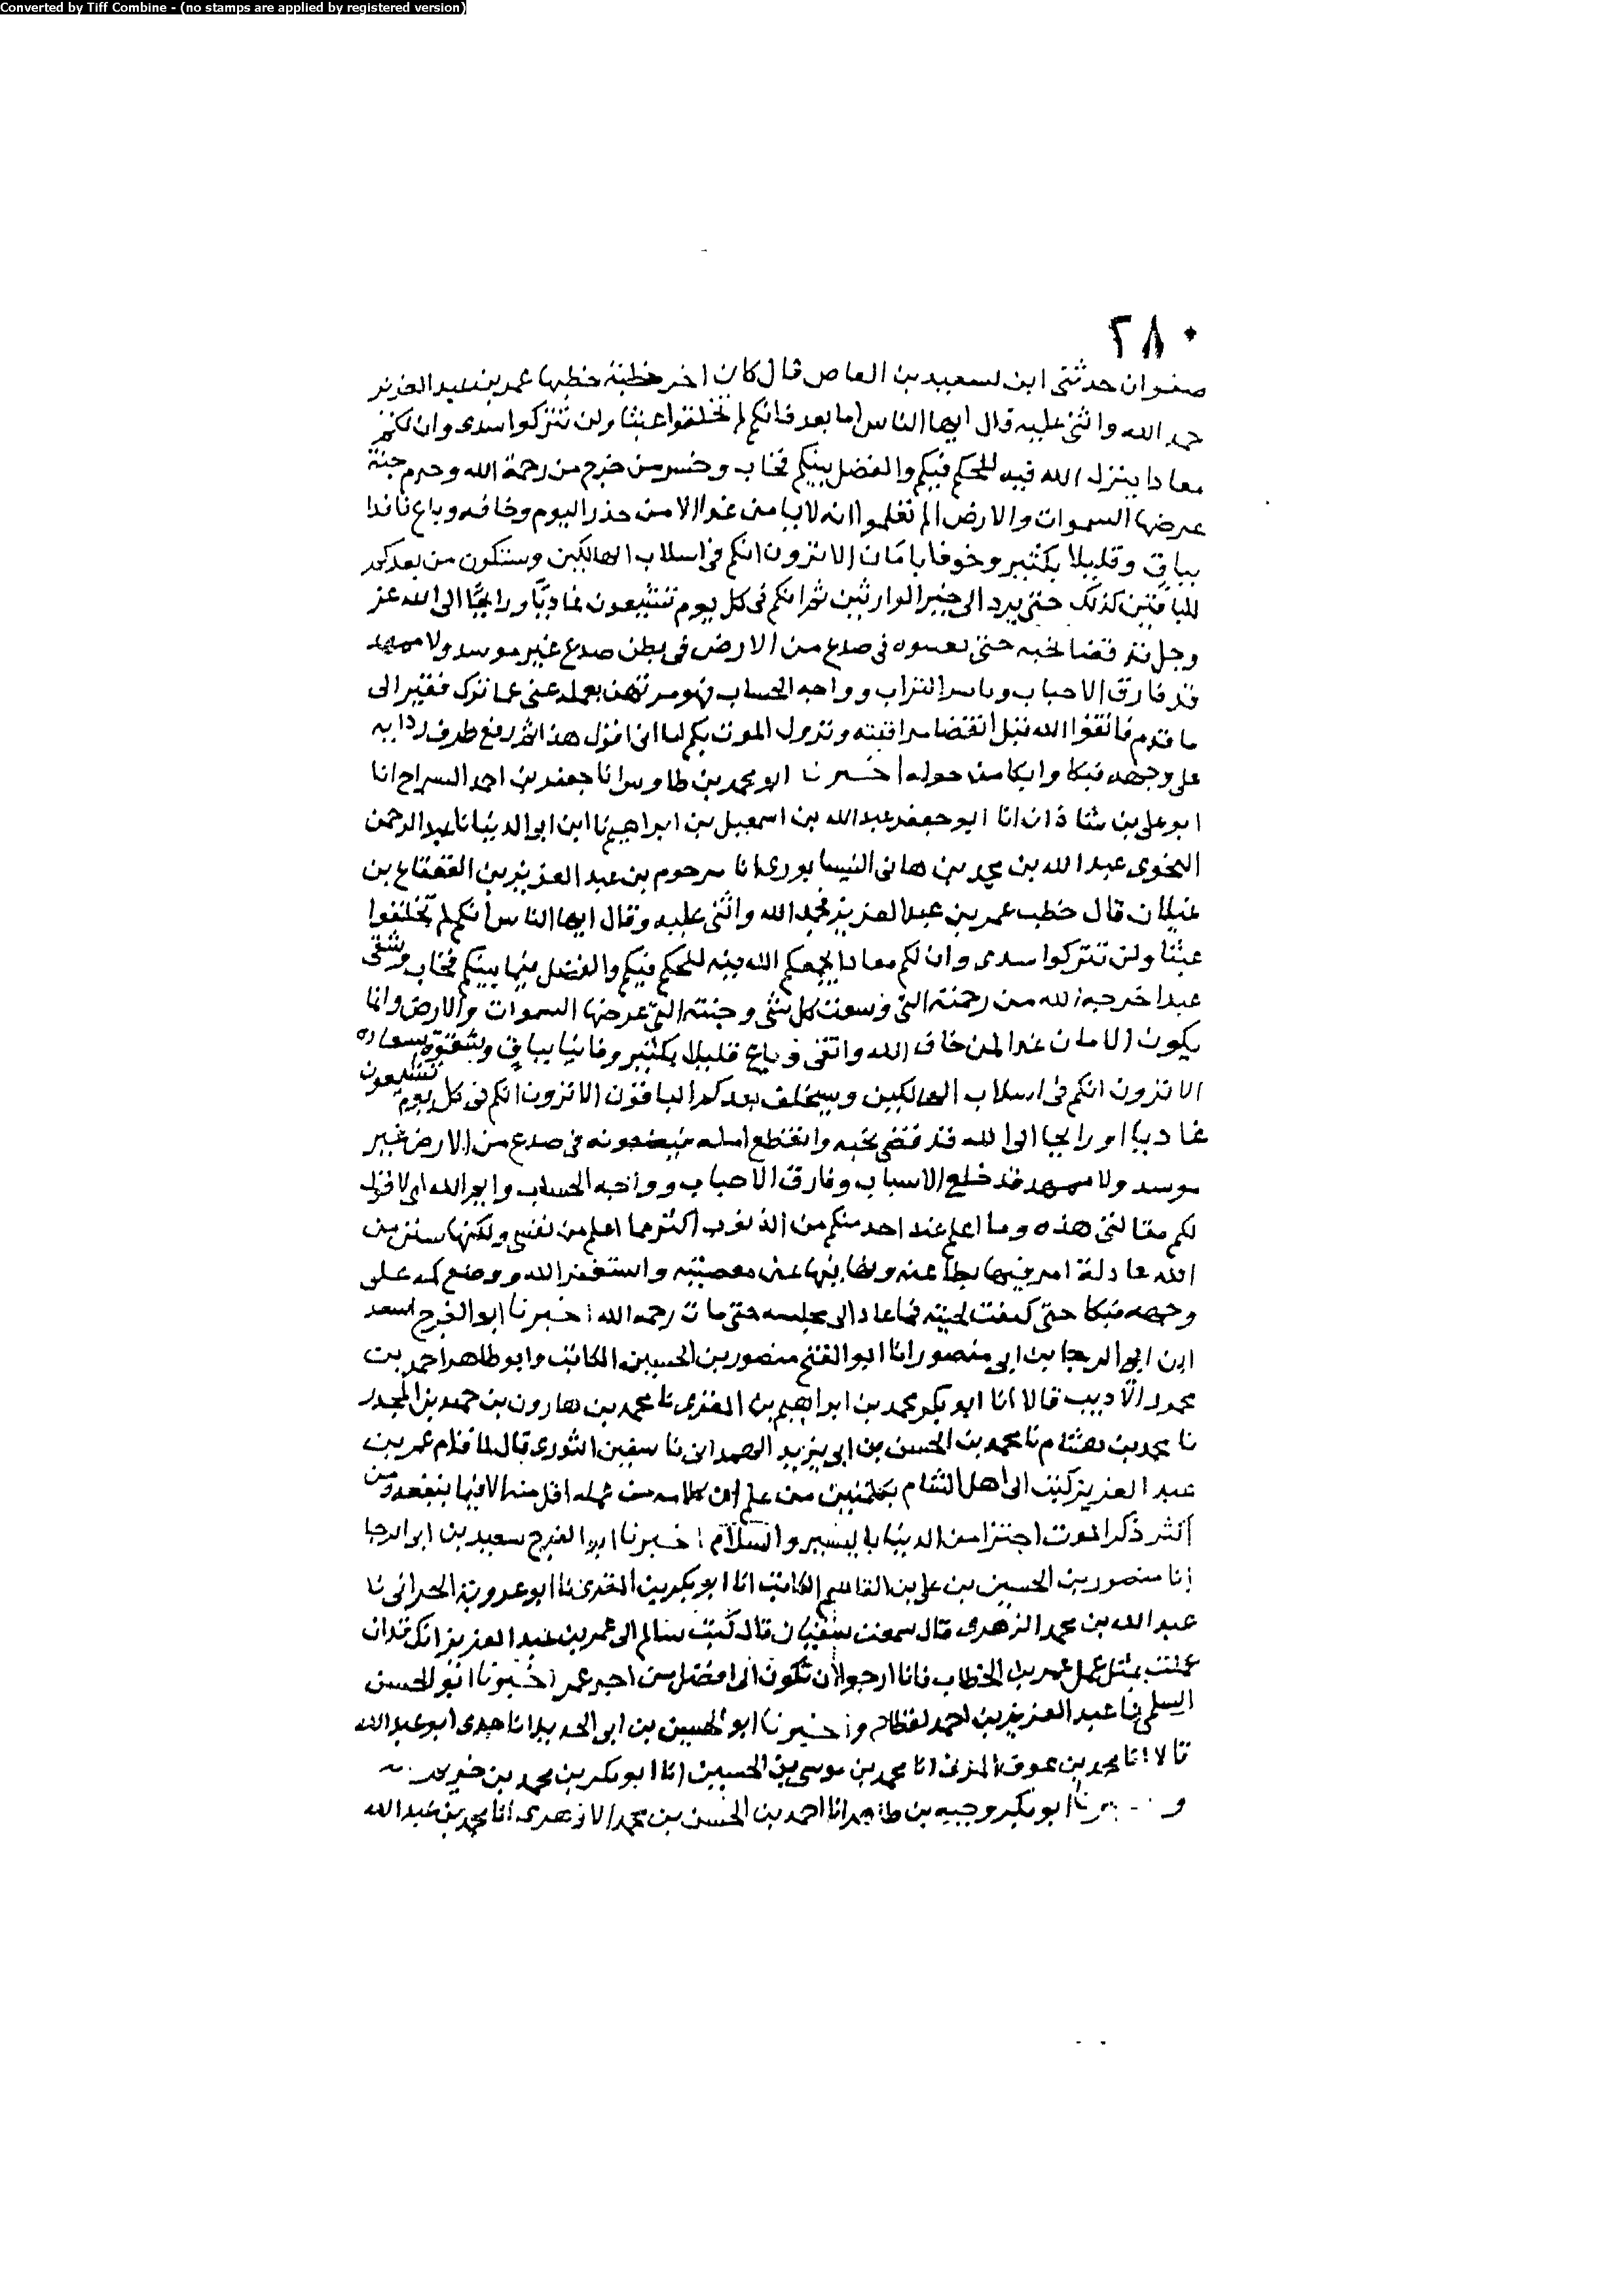 Converted by Tiff Combine - (no stamps are applied by registered version)
٢٨٠
صفوان حدثنى ابن لسعيد بن العاص قال كان اخر خطبة خطبها عمر بن عبد العزيز
حمد الله واثنى عليه وقال ايها الناس اما بعد فانكم لم تخلقوا عبثا ولن تتركوا سدى وان لكم
معادا ينزل الله فيه للحكم فيكم والفصل بينكم فخاب وخسر من خرج من رحمة الله وحرم جنة
عرضها السموات والارض الم تعلموا انه لا يامن غدا الا من حذر اليوم وخافه وباع نافدا
بباق وقليلا بكثير وخوفا بامان الا ترون انكم فى اسلاب الهالكين وستكون من بعدكم
للباقين كذلك حتى يرد الى خير الوارثين ثم انكم فى كل يوم تشيعون غاديا ورايحا الى الله عز
وجل قد قضا نحبه حتى فى صدع من الارض فى بطن صدع غير موسد ولا ممهد
قد فارق الاحباب وباسر التراب وواجه الحساب فهو مرتهن بعمله غنى عما ترك فقير الى
ما قدم فاتقوا الله قبل انقضا مراقبته ونزول الموت بكم اما انى اقول هذا ثم رفع طرف ردايه
على وجهه فبكا وابكا من حوله اخبرنا ابو محمد بن طاوس انا جعفر بن احمد السراج انا
ابو على بن شاذان انا ابو جعفر عبد الله بن اسمعيل بن ابراهيم نا ابن ابى الدنيا نا عبد الرحمن
النحوى عبد الله بن محمد بن هانى النيسابورى انا مرحوم بن عبد العزيز بن القعقاع بن
غيلان قال خطب عمر بن عبد العزيز فحمد الله واثنى عليه وقال ايها الناس انكم لم تخلقوا
عبثا ولن تتركوا سدى وان لكم معادا يجمعكم الله فيه للحكم فيكم والفصل فيما بينكم فخاب وشقى
عبد اخرجه الله من رحمته التى وسعت كل شى وجنته التى عرضها السموات والارض وانما
يكون الامان غدا لمن خاف الله واتقى وباع قليلا بكثير وفانيا بباق وشقوة بسعادة
الا ترون انكم فى اسلاب الهالكين وسيخلف بعدكم الباقون الا ترون انكم فى كل يوم تشيعون
غاديا او رايحا الى الله قد قضى نحبه وانقطع امله فيضعونه فى صدع من الارض غير
موسد ولا ممهد قد خلع الاسباب وفارق الاحباب وواجه الحساب وايم الله انى لاقول
لكم مقالتى هذه وما اعلم عند احد منكم من الذنوب اكثر مما اعلم من نفسى ولكنها سنن من
الله عادلة امر فيها بطاعته ونها فيها عن معصيته واستغفر الله ووضع كمه على
وجهه فبكا حتى لحيته فما عاد الى مجلسه حتى مات رحمه الله اخبرنا ابو الفرج سعيد
ابن ابى الرجا بن ابى منصور انا ابو الفتح منصور بن الحسين الكاتب وابو طاهر احمد بن
محمود الاديب قالا انا ابو بكر محمد بن ابراهيم بن المقرى نا محمد بن هارون بن حميد بن المجدر
نا محمد بن هشام نا محمد بن الحسن بن ابى يزيد الهمدانى نا سفين الثورى قال لما قام عمر بن
عبد العزيز كتب الى اهل الشام بكلمتين من علم ان كلامه من عمله اقل منه الا فيما ينفعه ومن
اكثر ذكر الموت اجتزا من الدنيا باليسير والسلام اخبرنا ابو الفرج سعيد بن ابى الرجا
انا منصور بن الحسين بن على بن القاسم الكاتب انا ابو بكر بن المقرى نا ابو عروبة الحرانى نا
عبد الله بن محمد الزهرى قال سمعت سفيان قال كتب سالم الى عمر بن عبد العزيز انك قد ان
عملت بمثل عمل عمر بن الخطاب فانا ارجو لان تكون اى افضل من اجر عمر اخبرنا ابو الحسن
السلمى نا عبد العزيز بن احمد لفظا واخبرنا ابو الحسين بن ابى الحديد انا جدى ابو عبد الله
قالا انا محمد بن عوف المزنى انا محمد بن موسى بن الحسين انا ابو بكر بن محمد بن خريم
ابو بكر وجيه بن طاهر انا احمد بن الحسن بن محمد الازهرى انا محمد بن عبد الله